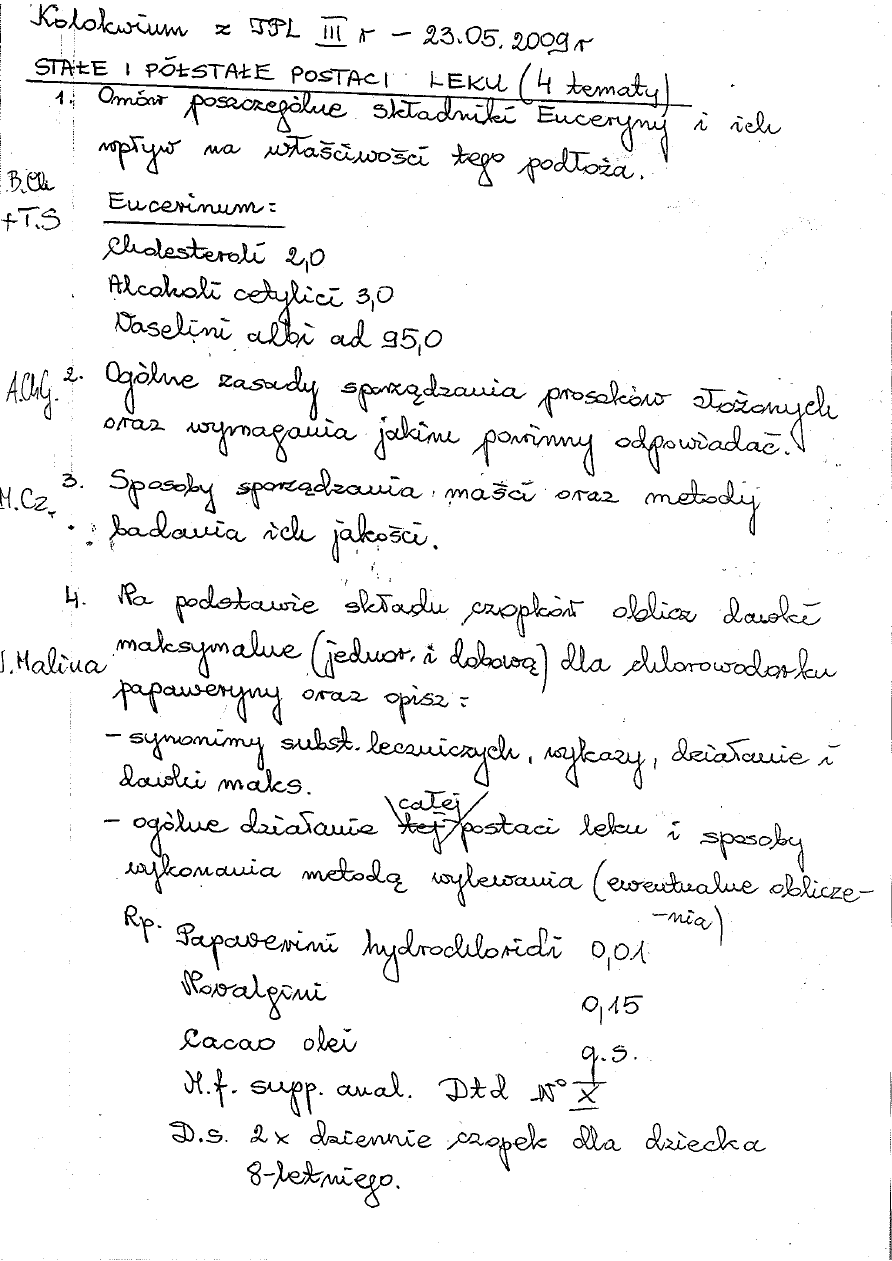 Kolokwium z TPL III r – 23.05.2009r
STAŁE I PÓŁSTAŁE POSTACI LEKU (4 tematy)
1. Omów poszczególne składniki Euceryny i ich
wpływ na właściwości tego podłoża.
B.Ch
+T.S
Eucerinum:
Cholesteroli 2,0
Alcoholi cetylici 3,0
Vaselini albi ad 95,0
A.ChG. 2. Ogólne zasady sporządzania proszków złożonych
oraz wymagania jakim powinny odpowiadać.
M.Cz. 3. Sposoby sporządzania maści oraz metody
badania ich jakości.
4. Na podstawie składu czopków oblicz dawkę
maksymalne (jednor. i dobową) dla chlorowodorku
J.Malina papaweryny oraz opisz:
– synonimy subst. leczniczych, wykazy, działanie i
dawki maks.
– ogólne działanie tej całej postaci leku i sposoby
wykonania metodą wylewania (ewentualne oblicze-
-nia)
Rp. Papaverini hydrochloridi 0,01
Novalgini 0,15
Cacao olei q.s.
M.f. supp. anal. Dtd N° X
D.s. 2x dziennie czopek dla dziecka
8-letniego.